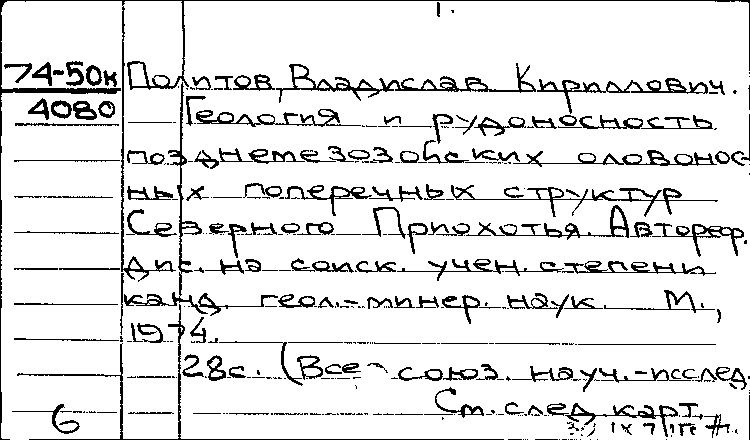 1.
74-50к Политов, Владислав Кириллович.
4080 Геология и рудоносность
позднемезозойских оловонос-
ных поперечных структур
Северного Приохотья. Автореф.
дис. на соиск. учен. степени
канд. геол.-минер. наук. М.,
1974.
28с. (Все- союз. науч.-исслед.
См. след. карт.
6